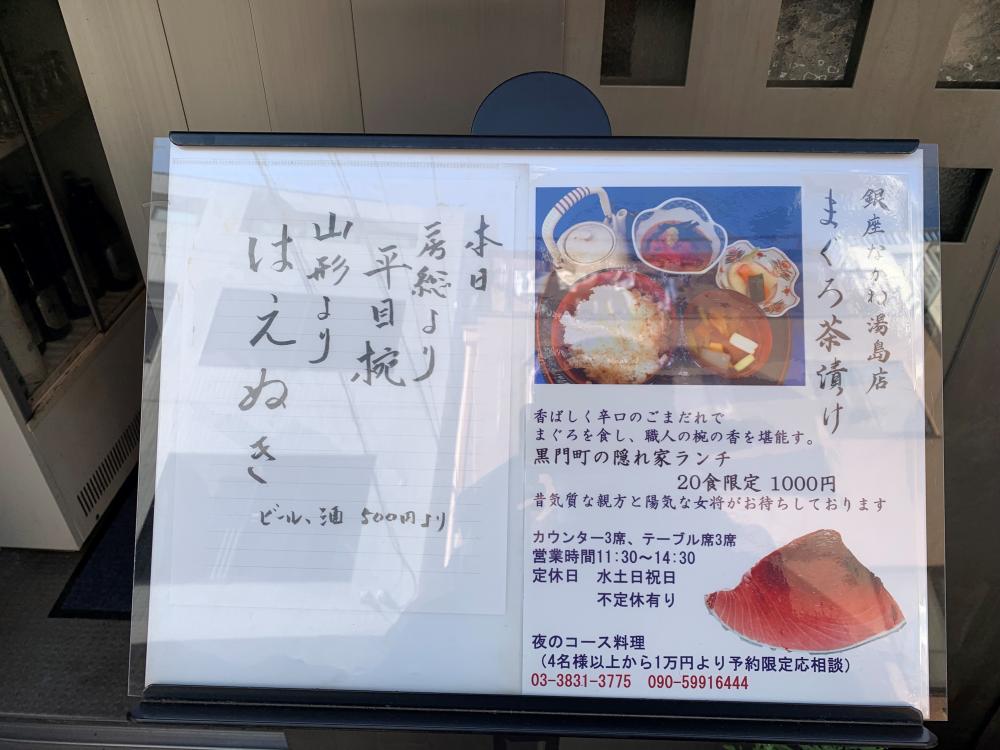 本日
房総より
平目椀
山形より
はえぬき
ビール、酒 500円より
銀座なかわ湯島店
まぐろ茶漬け
香ばしく辛口のごまだれで
まぐろを食し、職人の椀の香を堪能す。
黒門町の隠れ家ランチ
20食限定 1000円
昔気質な親方と陽気な女将がお待ちしております
カウンター3席、テーブル席3席
営業時間11:30～14:30
定休日 水土日祝日
不定休有り
夜のコース料理
（4名様以上から1万円より予約限定応相談）
03-3831-3775 090-59916444